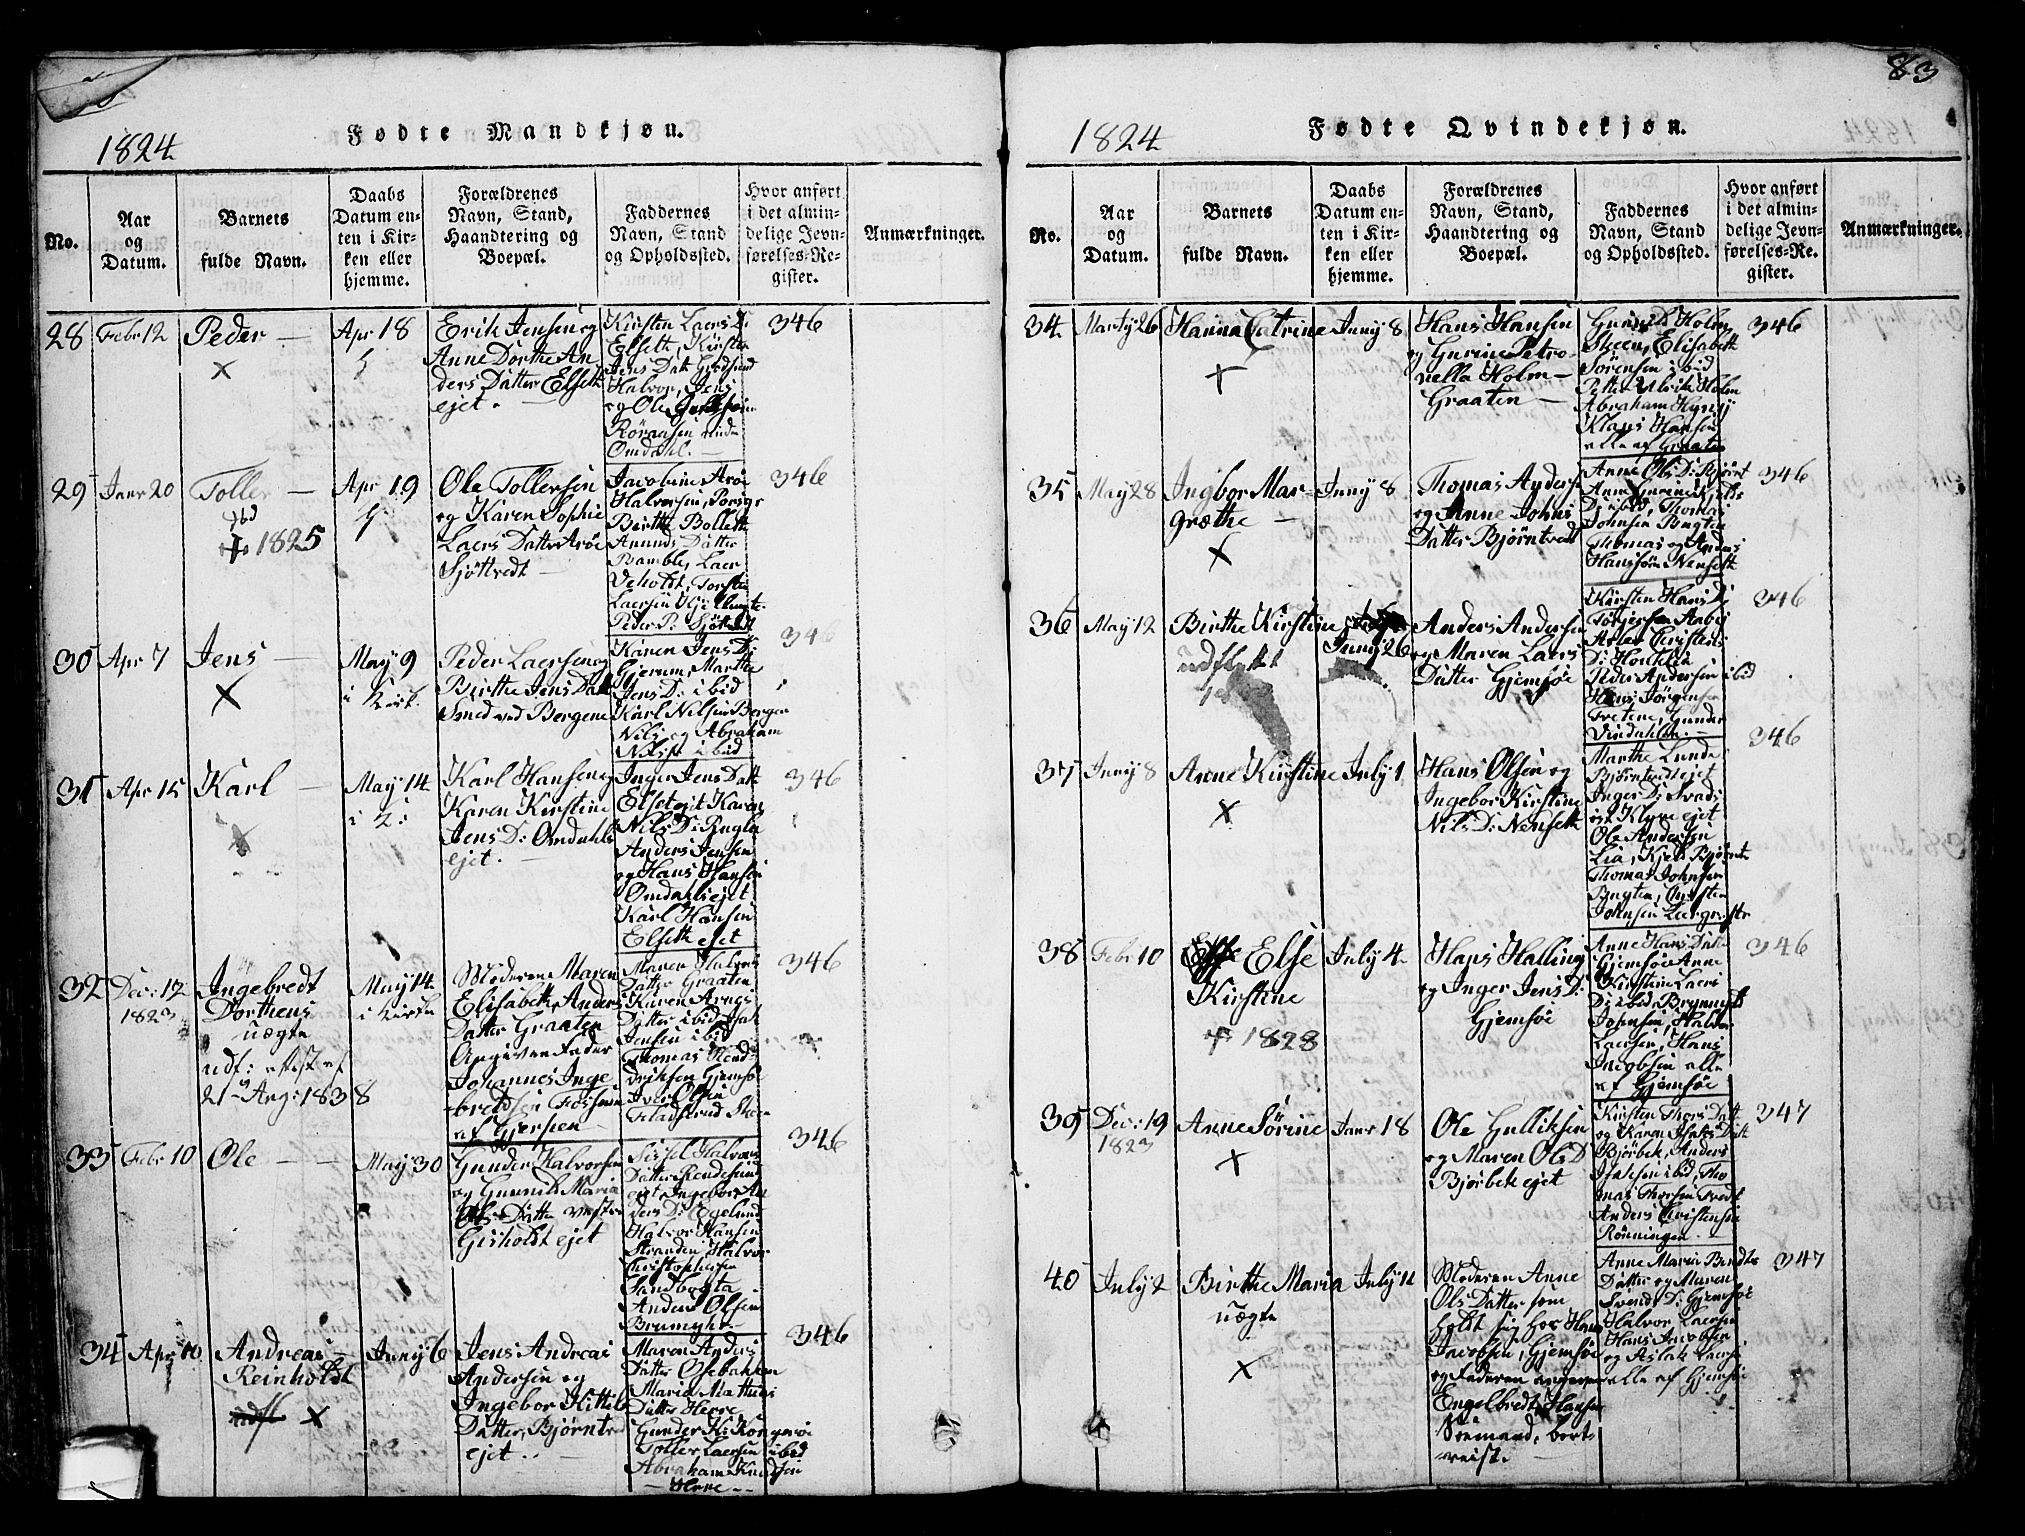 83
1824
Fødte Mandkjøn.
No.
Aar
og
Datum.
Barnets
fulde Navn.
Daabs
Datum en-
ten i Kir-
ken eller
hjemme.
Forældrenes
Navn, Stand,
Haandtering og
Boepæl.
Faddernes
Navn, Stand
og Opholdssted.
Hvor anført
i det almin-
delige Jevn-
førelses-Re-
gister.
Anmærkninger.
28
Febr 12
Peder
Apr 18
Erik Jensen og
Anne Dorthe An
ders Datter Elseth
ejet.
Kirsten Laers D:
Elseth, Kirsten
Jens Datt
Halvor, Jens
og Ole
Omdahl.
346
29
Janr 20
Toller
1825
Apr 19
Ole Tollersen
og Karen Sophie
Laers Datter Arøe
Sjøttvedt
Jacobine Arøe
Halvorsen, Porsgr
Birthe Bollette
Amunds Datter
Bamble, Laers
Veholdt, Torsten
Laersen
Peder P:
346
30
Apr 7
Jens
May 9
i Kirk.
Peder Laersen og
Birthe Jens Datt
Smed ved Bergene
Karen Jens D:
Gjerum, Marthe
Jens D: ibid
Karl Nilsen Bergen
Nils og Abraham
Nilss: ibid
346
31
Apr 15
Karl
May 14
i K:
Karl Hansen og
Karen Kirstine
Jens D: Omdahls
ejet.
Inger Jens Datt
Elset ejet Karen
Nils D:
Anders Jensen
og Hans Hansen
Omdahl ejet
Karl Hansen
Elseth ejet
346
32
Dec: 12
1823
Ingebredt
Dortheus
uægte
udf: attest af
21 Aug: 1838
May 14
i Kirke
Moderen Maren
Elisabeth, Anders
Datter Graaten
Angiven Fader
Johannes Inge
bredtsen Fossum
af Gjerpen
Maren Halvors
Datter Graaten
Karen Arnes
Datter ibid
Jensen ibid
Thomas Hend-
driksen Gjemsøe
Iver Olsen
346
33
Febr 10
Ole
May 30
Gunder Halvorsen
og Gunild Maria
Ols Datter vestre
Gisholdt ejet
Sissel Halvors
Datter
ejet, Ingebor An
ders D: Egelund
Halvor Hansen
Stranden, Halvor
Christophersen
Sandbogta
Anders Olsen
346
34
Apr 10
Andreas
Reinholdt
udfl
Juny 6
Jens Andreas
Andersen og
Ingebor Kittils
Datter, Bjørntv
ejet.
Maren Anders
Datter Osebakken
Maria Mathias
Datter Herre
Gunder K: Kongerøi
Toller Laersen ibid
Abraham Knudsen
Herre
346
1824
Fødte Qvindekjøn.
No.
Aar
og
Datum.
Barnets
fulde Navn.
Daabs
Datum en-
ten i Kir-
ken eller
hjemme.
Forældrenes
Navn, Stand,
Haandtering og
Boepæl.
Faddernes
Navn, Stand
og Opholdssted.
Hvor anført
i det almin-
delige Jevn-
førelses-Re-
gister.
Anmærkninger.
34
Marty 26
Hanna Catrine
Juny 8
Hans Hansen
og Gurine Petro-
nella Holm
Graaten
Gunild Holm
Skeen, Elisabeth
Sørensen ibid
Petter Ulrik Holm
Abraham
Klaus Hansen
alle af Graaten
346
35
May 28
Ingbor Mar-
grethe
Juny 8
Thomas Anders
og Anne Johns
Datter Bjørntvedt
Anne Ols D: Bjørnt
Anne Gurine Kjelds
D: ibid, Thomas
Johnsen
Thomas og Anders
Hanssøn Nenseth
346
36
May 12
Birthe Kirstine
udflytt
Juny 26
Anders Andersen
og Maren Laers
Datter Gjemsøe
Kirsten Hans D:
Torjersen
Christens
D:
Peder Andersen ibid
Hans Jørgensen
Fretene, Gunder
Vindahlen.
346
37
Juny 8
Anne Kirstine
July 1
Hans Olsen og
Ingebor Kirstine
Nils D: Nenseth
Marthe Lunde
Bjørntvedt ejet
Inger D:
og Klyve ejet
Ole Andersen
Lia, Kjeld Bjørntv
Thomas Johnsen
346
38
Febr 10
Else
Kirstine
1828
July 4
Hans Halling
og Inger Jens D:
Gjemsøe
Anne Hans Datt
Gjemsøe Anne
Kirstine Laers
D: ibid, Brynnild
Johnsen, Halvor
Laersen, Hans
Jacobsen alle
af Gjemsøe
346
39
Dec: 19
1823
Anne Sørine
Janr 18
Ole Gulliksen
og Maren Ols D
Bjørbek ejet
Kirsten Thors Datt
og Karen Isaks Datt
Bjørbek, Anders
Isaksen ibid, Tho
mas Thorsen Tvedt
Anders Christensen
Rønningen.
347
40
July 2
Birthe Maria
uægte
July 11
Moderen Anne
Ols Datter som
holdt sig hos Hans
Jacobsen, Gjemsøe
og Faderen angiven
Engelbredt Hansen
Sømand, bort
reist.
Anne Maria Bendts
Datter og Maren
Svends D: Gjemsøe
Halvor Laersen
Hans Jacobsen
og Aslak Laersen
alle af Gjemsøe
347